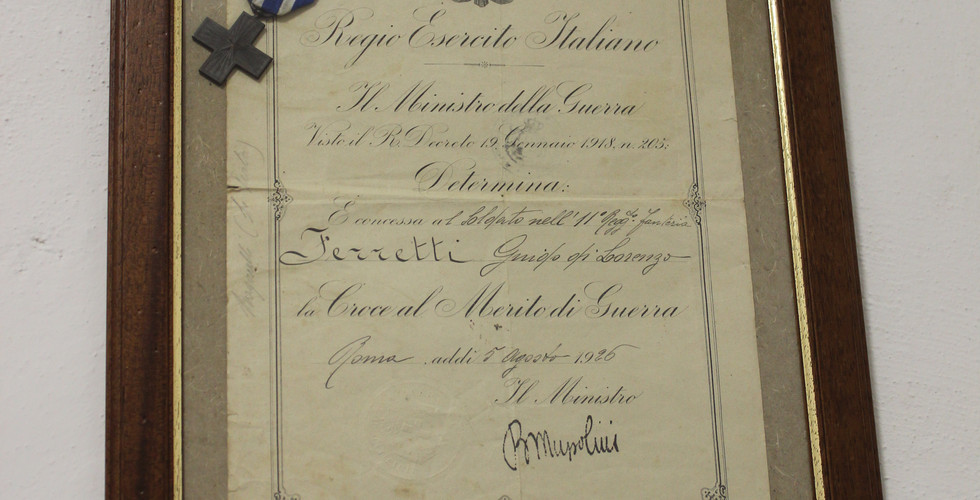 Regio Esercito Italiano
Il Ministro della Guerra
Visto il R. Decreto 19 Gennaio 1918. n. 205;
Determina:
È concessa al Soldato nell' 11° Regg.to fanteria
Ferretti Guido di Lorenzo
la Croce al Merito di Guerra
Roma, addì 5 Agosto 1926
Il Ministro
BMussolini